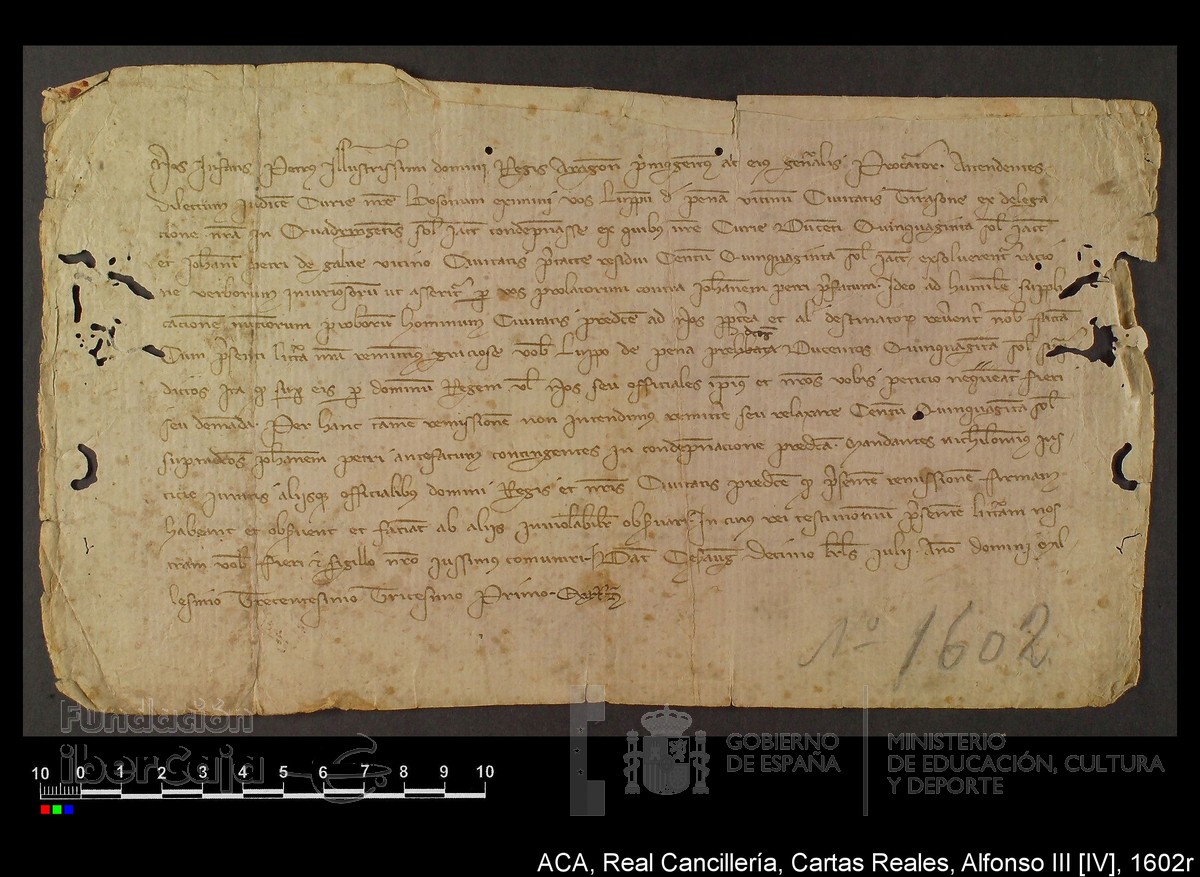 Nos Infans Petrus Illustrissimi domini Regis Aragon primogenitus ac eius gñalis Procurator. Attendentes
dilectum Iudicem Curie nre eximini vos Luppum de pena vicinum Civitatis Tirasone ex delega
cione nra in Quadringentis sol iacc condempnasse ex quibus nre Curie Ducenti Quinquaginta sol iacc
et Iohani petri de vicino Civitatis residui Centum Quinquaginta sol iacc exsolverentr racio
ne verborum iniuriosorum ut asseritr per vos prolatorum contra Iohanem petri prefatum. Ideo ad humilem suppli
cacionem nunciorum proborum hominum Civitatis predcte ad Nos propterea et al destinator reverentr nob factam
Cum presenti littra nra remittimus graciose vob Luppo de pena dictos Ducentos Quinquaginta sol
dictos Ita quod super eis per dominum Regem vel Nos seu officiales ipius et nros vobis peticio nequeat fieri
seu demanda. Per hanc tamen remissionem non intendimus remittere seu relaxare Centum Quinquaginta sol
supradctos Iohanem petri antefatum contingentes in condempnacione predcta. Mandantes nichilominus Ius
ticie iuratis aliisque officialibus domini Regis et nris Civitatis predcte quod presentem remissionem firmam
habeant et observent et faciant ab aliis inviolabiliter observari. In cuius rei testimonium presentem littram nos
tram vob fieri et sigillo nro iussimus comuniri. Dat Cesaraug Decimo kls Iulii. Anno domini Mil
lesimo Trecentesimo Tricesimo Primo.
No 1602
Fundación
iberCaja
GOBIERNO
DE ESPAÑA
MINISTERIO
DE EDUCACIÓN, CULTURA
Y DEPORTE
10 0 1 2 3 4 5 6 7 8 9 10
ACA, Real Cancillería, Cartas Reales, Alfonso III [IV], 1602r